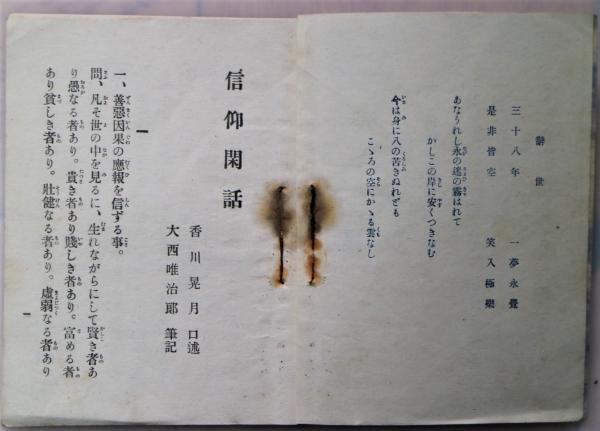 辭世
三十八年 一夢永覺
是非皆空 笑入極樂
あなうれし永の迷の霧はれて
かしこの岸に安くつきなむ
今は身に八の苦きぬれども
こゝろの空にかゝる雲なし
信仰閑話
香川晃月 口述
大西唯治郎 筆記
一、善惡因果の應報を信ずる事。
問、凡そ世の中を見るに、生れながらにして賢き者あ
り愚なる者あり。貴き者あり賤しき者あり。富める者
あり貧しき者あり。壯健なる者あり。虛弱なる者あり